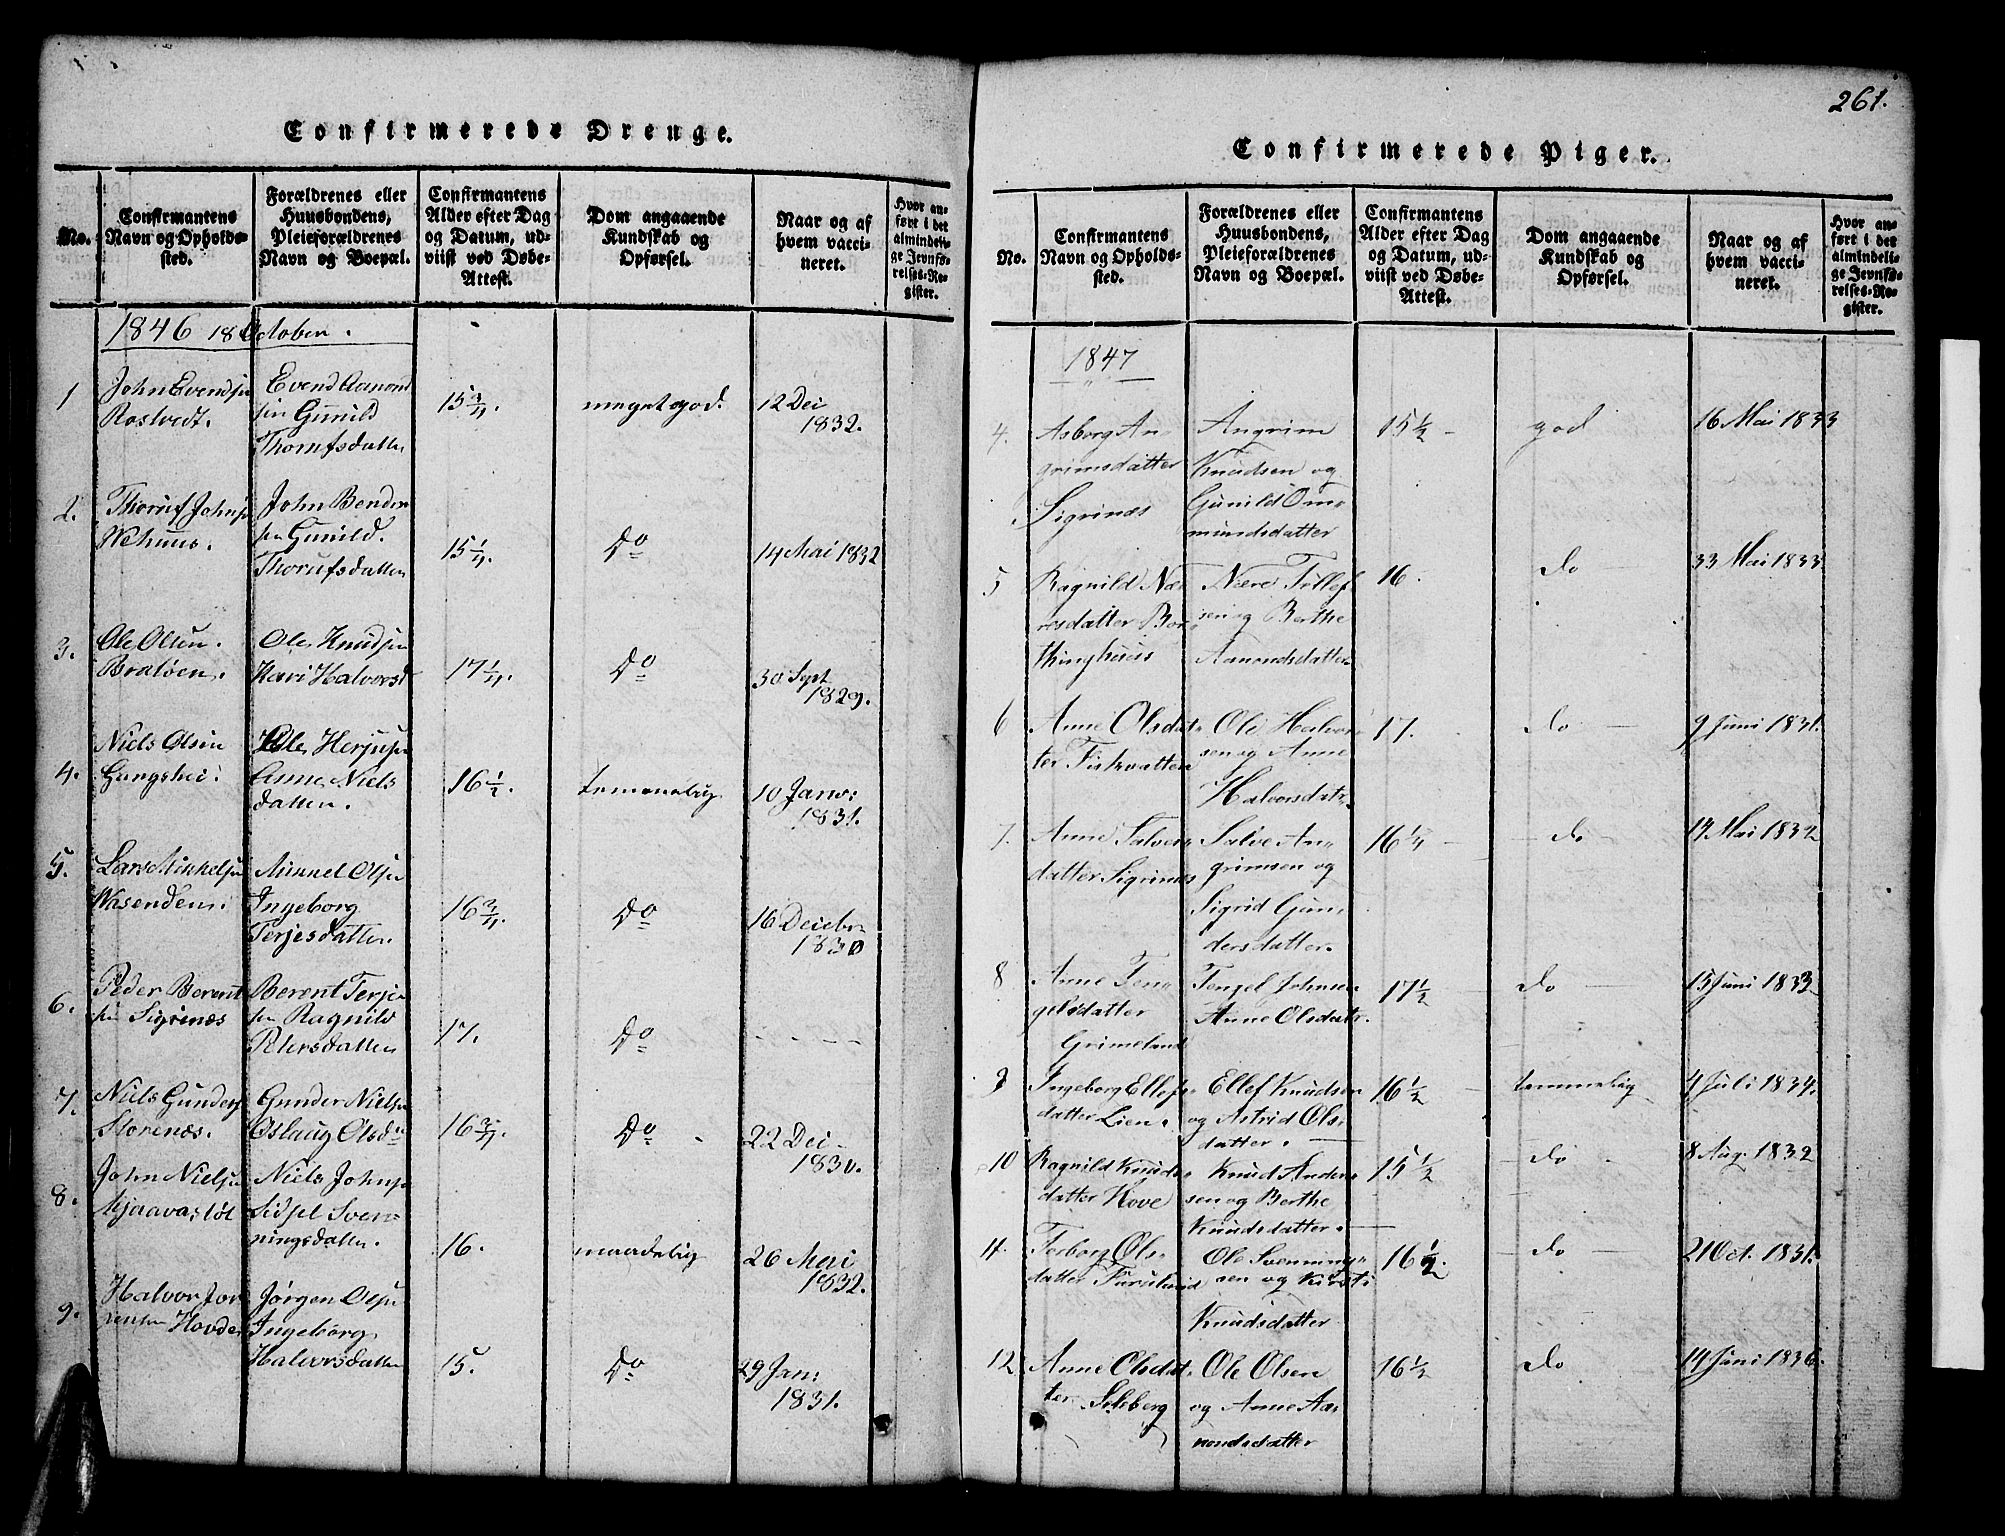 261.
Confirmerede Drenge.
No.
Confirmantens
Navn og Opholds-
sted.
Forældrenes eller
Huusbondens,
Pleieforældrenes
Navn og Boepæl.
Confirmantens
Alder efter Dag
og Datum, ud-
viist ved Døbe-
Attest.
Dom angaaende
Kundskab og
Opførsel.
Naar og af
hvem vacci-
neret.
Hvor an-
ført i det
almindeli-
ge Jevnfø-
relses-Re-
gister.
1846 18 October.
1
John Evendsen
Rostvedt.
Evend Aamond
sen Gunild
Thorufsdatter
15 3/4.
meget god.
12 Dec
1832.
2.
Thoruf Johnsen
Wehuus.
John Benden
sen Gunild
Thorufsdatter
15 1/4.
Do
14 Mai 1832
3.
Ole Olsen.
Braløen.
Ole Knudsen
Kari Halvorsd
17 1/4.
Do
30 Sept
1829.
4.
Niels Olsen
Ole Herjusen
Anne Niels
datter.
16 1/2.
temmelig
10 Janv:
1831.
5.
Lars Mikkelsen
Wasenden.
Mikkel Olsen
Ingeborg
Terjesdatter.
16 3/4.
Do
16 Decbr
1830
6.
Peder Berent
sen Sigrinæs
Berent Terje
sen Ragnild
Petersdatter
17.
Do
- - - -
7.
Niels Gunders
Storenæs.
Gunder Nielsen
Oslaug Olsd
16 3/4.
Do
22 Dec
1830.
8.
John Nielsen
Mjaavasløl
Niels Johnsen
Sidsel Sven
ningsdatter.
16.
maadelig
26 Mai
1832.
9.
Halvor Jør
gensen Hovde
Jørgen Olsen
Ingeborg
Halvorsdatter
15.
Do
29 Jan:
1831.
Confirmerede Piger.
No.
Confirmantens
Navn og Opholds-
sted.
Forældrenes eller
Huusbondens,
Pleieforældrenes
Navn og Boepæl.
Confirmantens
Alder efter Dag
og Datum, ud-
viist ved Døbe-
Attest.
Dom angaaende
Kundskab og
Opførsel.
Naar og af
hvem vacci-
neret.
Hvor an-
ført i det
almindeli-
ge Jevnfø-
relses-Re-
gister.
1847
4.
Asborg An
grimsdatter
Sigrinæs
Angrim
Knudsen og
Gunild Om
mundsdatter
15 1/2
god
16 Mai 1833
5
Ragnild Næ
resdatter Bor
thinghuus
Nære Tillef
sen og Berthe
Aanondsdatter
16.
do
33 Mai 1833
6
Anne Olsdat
ter Fiskvatten
Ole Halvor
sen og Anne
Halvorsdatr.
17.
do
9 Juni 1831.
7.
Anne Salves
datter Sigrinæs
Salve An
grimsen og
Sigrid Gun
dersdatter.
16 1/4
do
14 Mai 1832
8
Anne Ten
gelsdatter
Grimeland
Tengel Johnsen
Anne Olsdatr.
17 1/2
do
15 Juni 1833
9
Ingeborg Ellefs
datter Lien.
Ellef Knudsen
og Astrid Ols
datter.
16 1/2
temmelig
4 Juli 1834.
10
Ragnild Knuds
datter Hove
Knud Anders
sen og Berthe
Knudsdatter.
15 1/2
do
8 Aug. 1832
11.
Torborg Ols
datter
Ole Svenning
sen og Kirsti
Knudsdatter
16 1/2.
do
21 Oct. 1831.
12.
Anne Olsdat
ter
Ole Olsen
og Anne Aa
nondsdatter
16 1/2
do
14 Juni 1836.